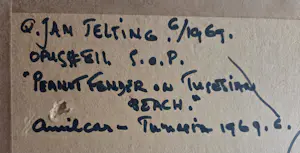 Q. JAN TELTING. 6/1969.
OPUS#EIL S.O.P.
"PEANUT FENDER ON TUNESIAN
BEACH."
Amilcar - Tunesia 1969. 6.